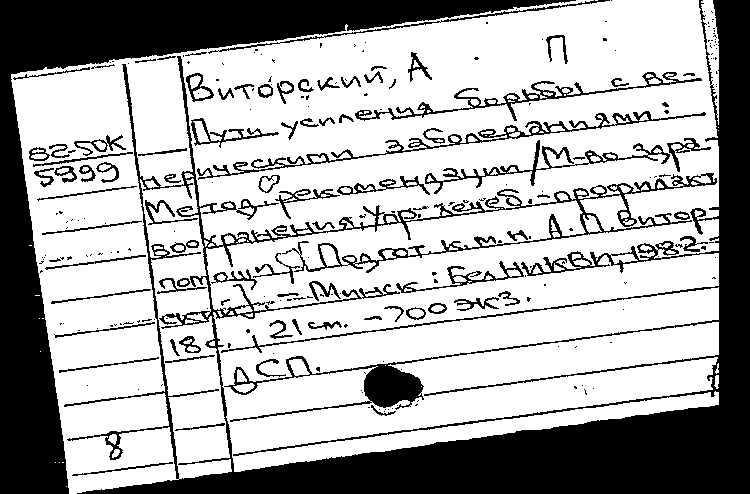 Виторский, А П
Пути усиления борьбы с ве-
82-50К
5999
нерическими заболеваниями:
Метод. рекомендации / М-во здра-
воохранения; Упр. лечеб.-профилакт
помощи; [Подгот. к.м.н. А.П. Витор-
ский]. - Минск: БелНИКВИ, 1982. -
18 с.; 21 см. - 700 экз.
ДСП.
8